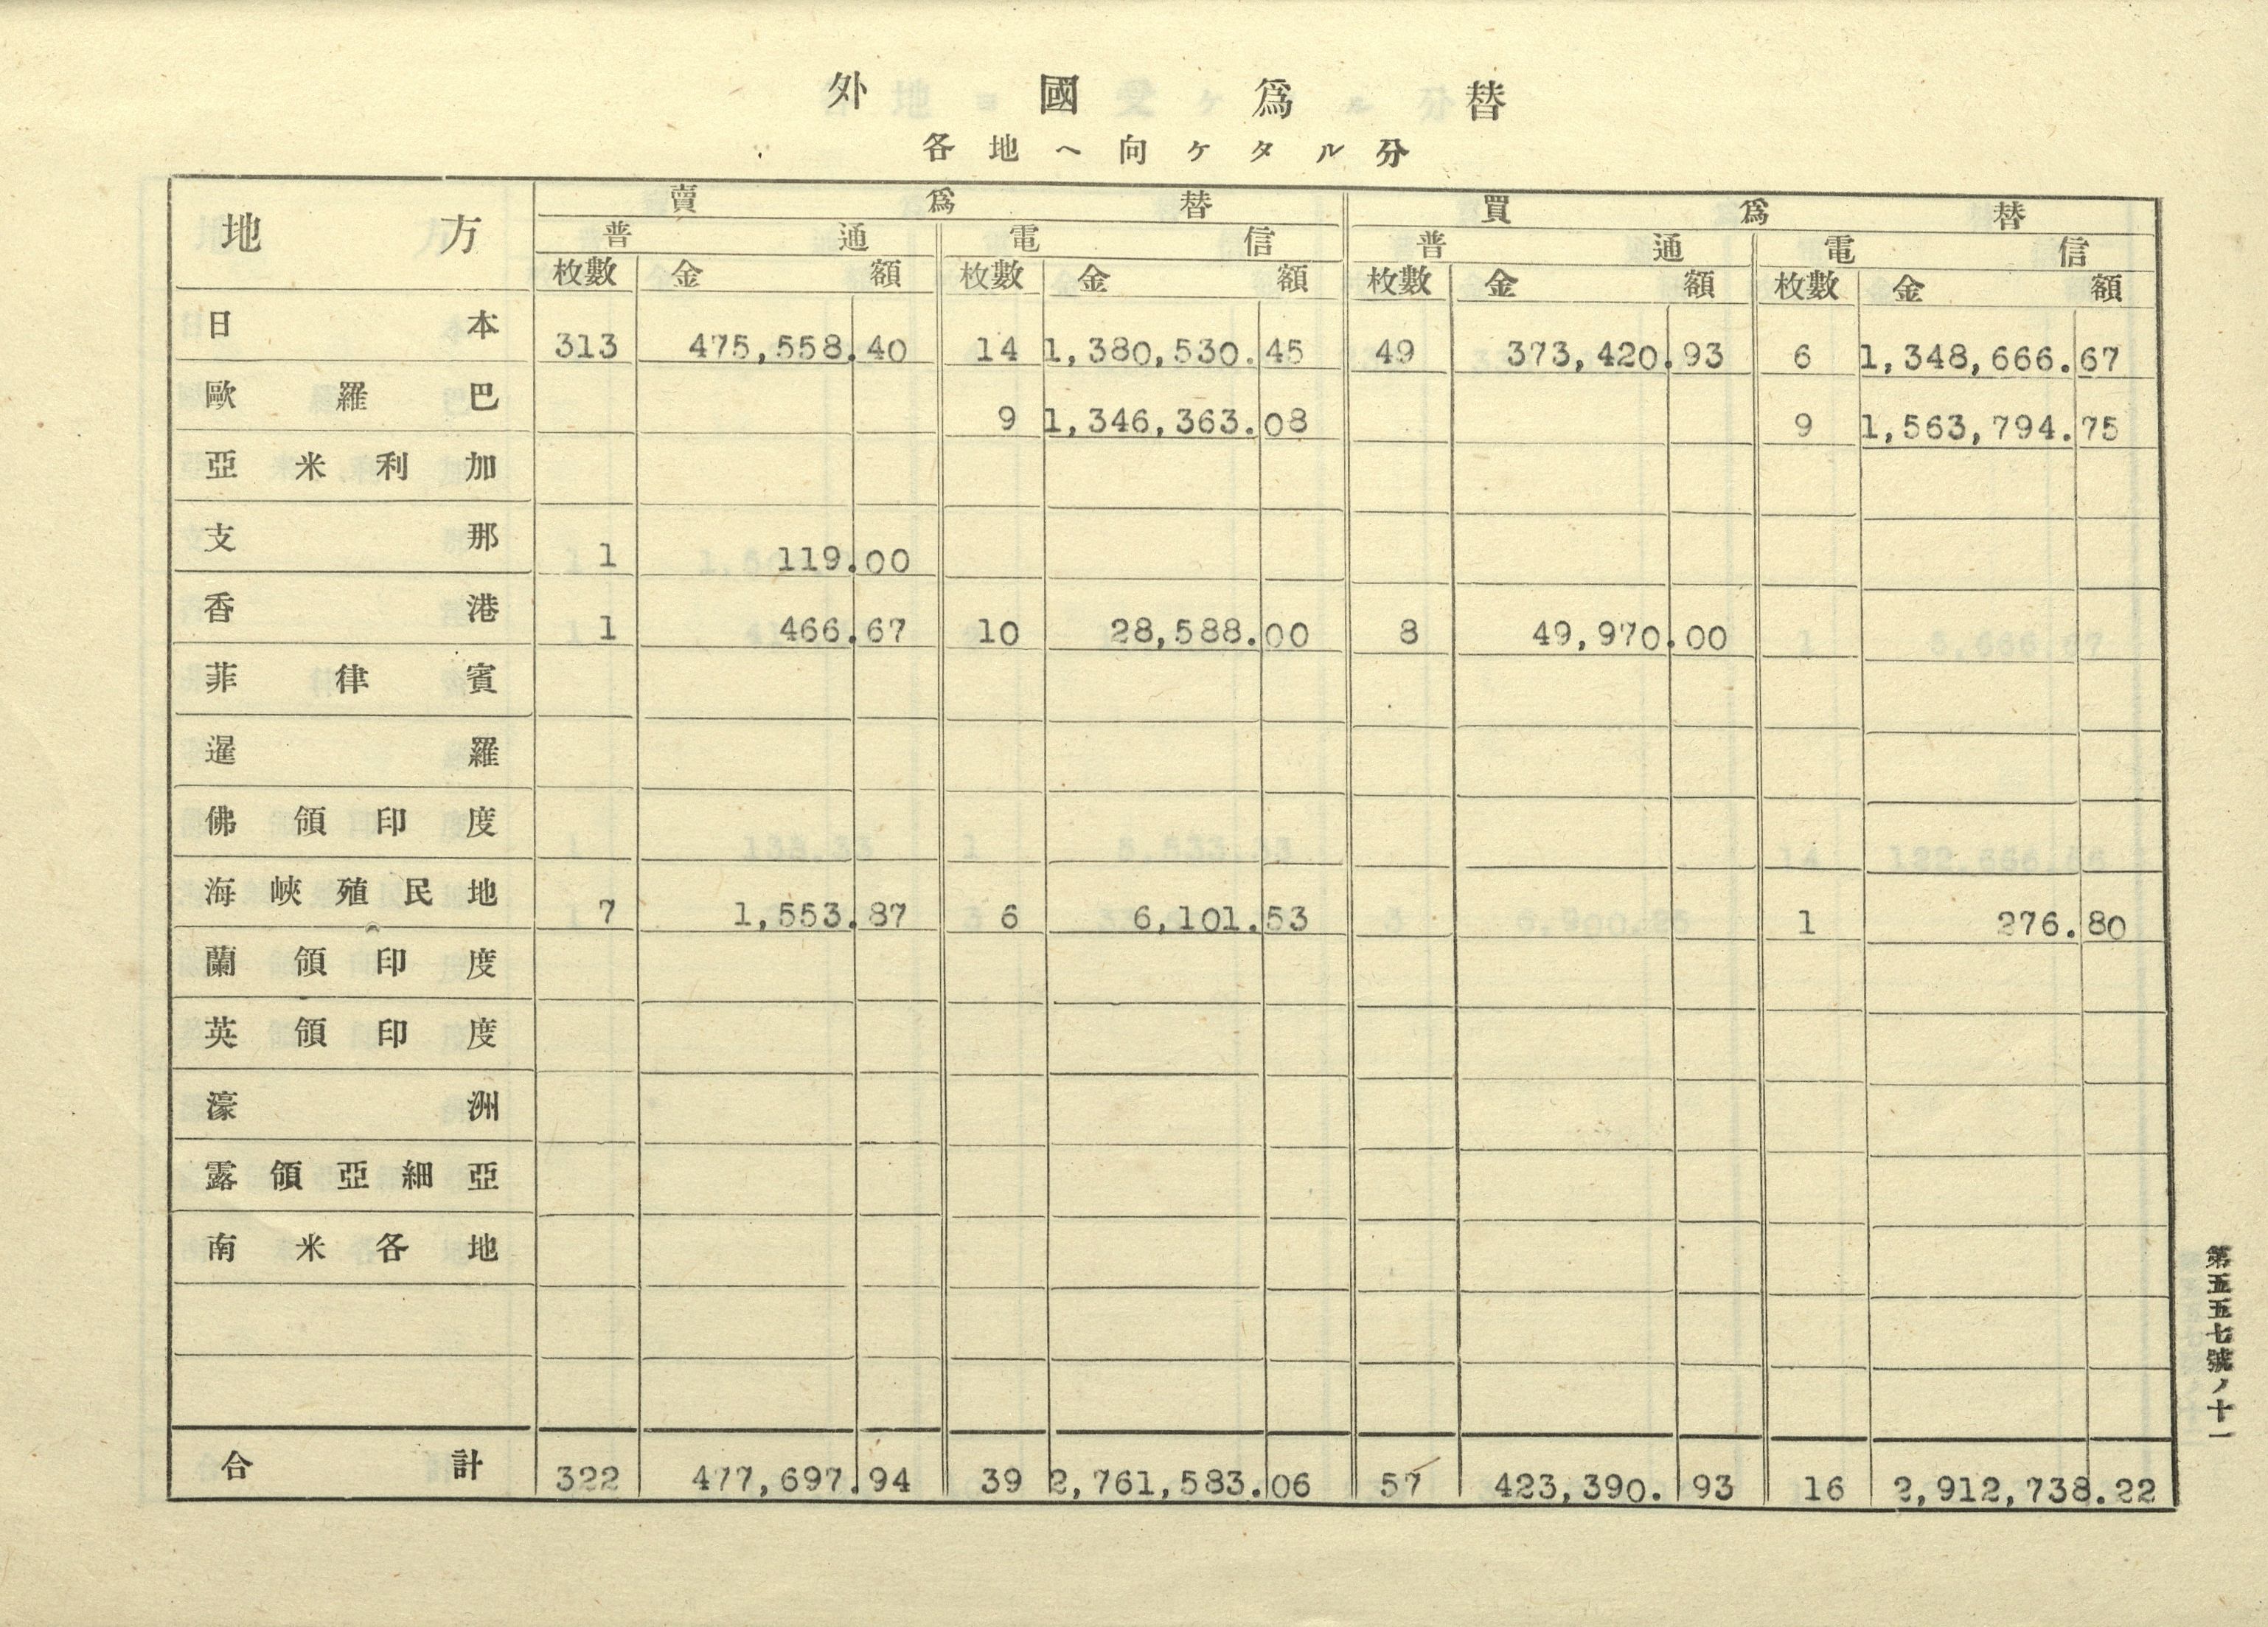 外國爲替
各地ヘ向ケタル分
地方 賣爲替 買爲替
普通 電信 普通 電信
枚數 金額 枚數 金額 枚數 金額 枚數 金額
日本 313 475,558.40 14 1,380,530.45 49 373,420.93 6 1,348,666.67
歐羅巴 9 1,346,363.08 9 1,563,794.75
亞米利加
支那 1 119.00
香港 1 466.67 10 28,588.00 8 49,970.00
菲律賓
暹羅
佛領印度
海峽殖民地 7 1,553.87 6 6,101.53 1 276.80
蘭領印度
英領印度
濠洲
露領亞細亞
南米各地
合計 322 477,697.94 39 2,761,583.06 57 423,390.93 16 2,912,738.22
第五五七號ノ十一